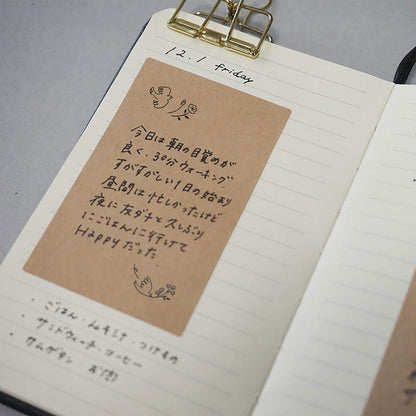 12.1 friday
今日は朝の目覚めが
良く、30分ウォーキング
すがすがしい1日の始まり
昼間は忙しかったけど
夜に友ダチと久しぶり
にごはんに行けて
Happyだった
・ごはん・ ・つけもの
・サンドウィッチ・コーヒー
・サムゲタン